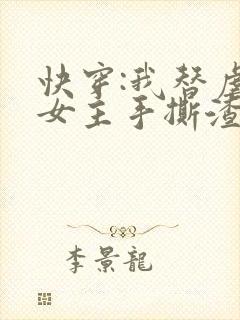 快穿:我替虐
女主手撕渣
李景龍